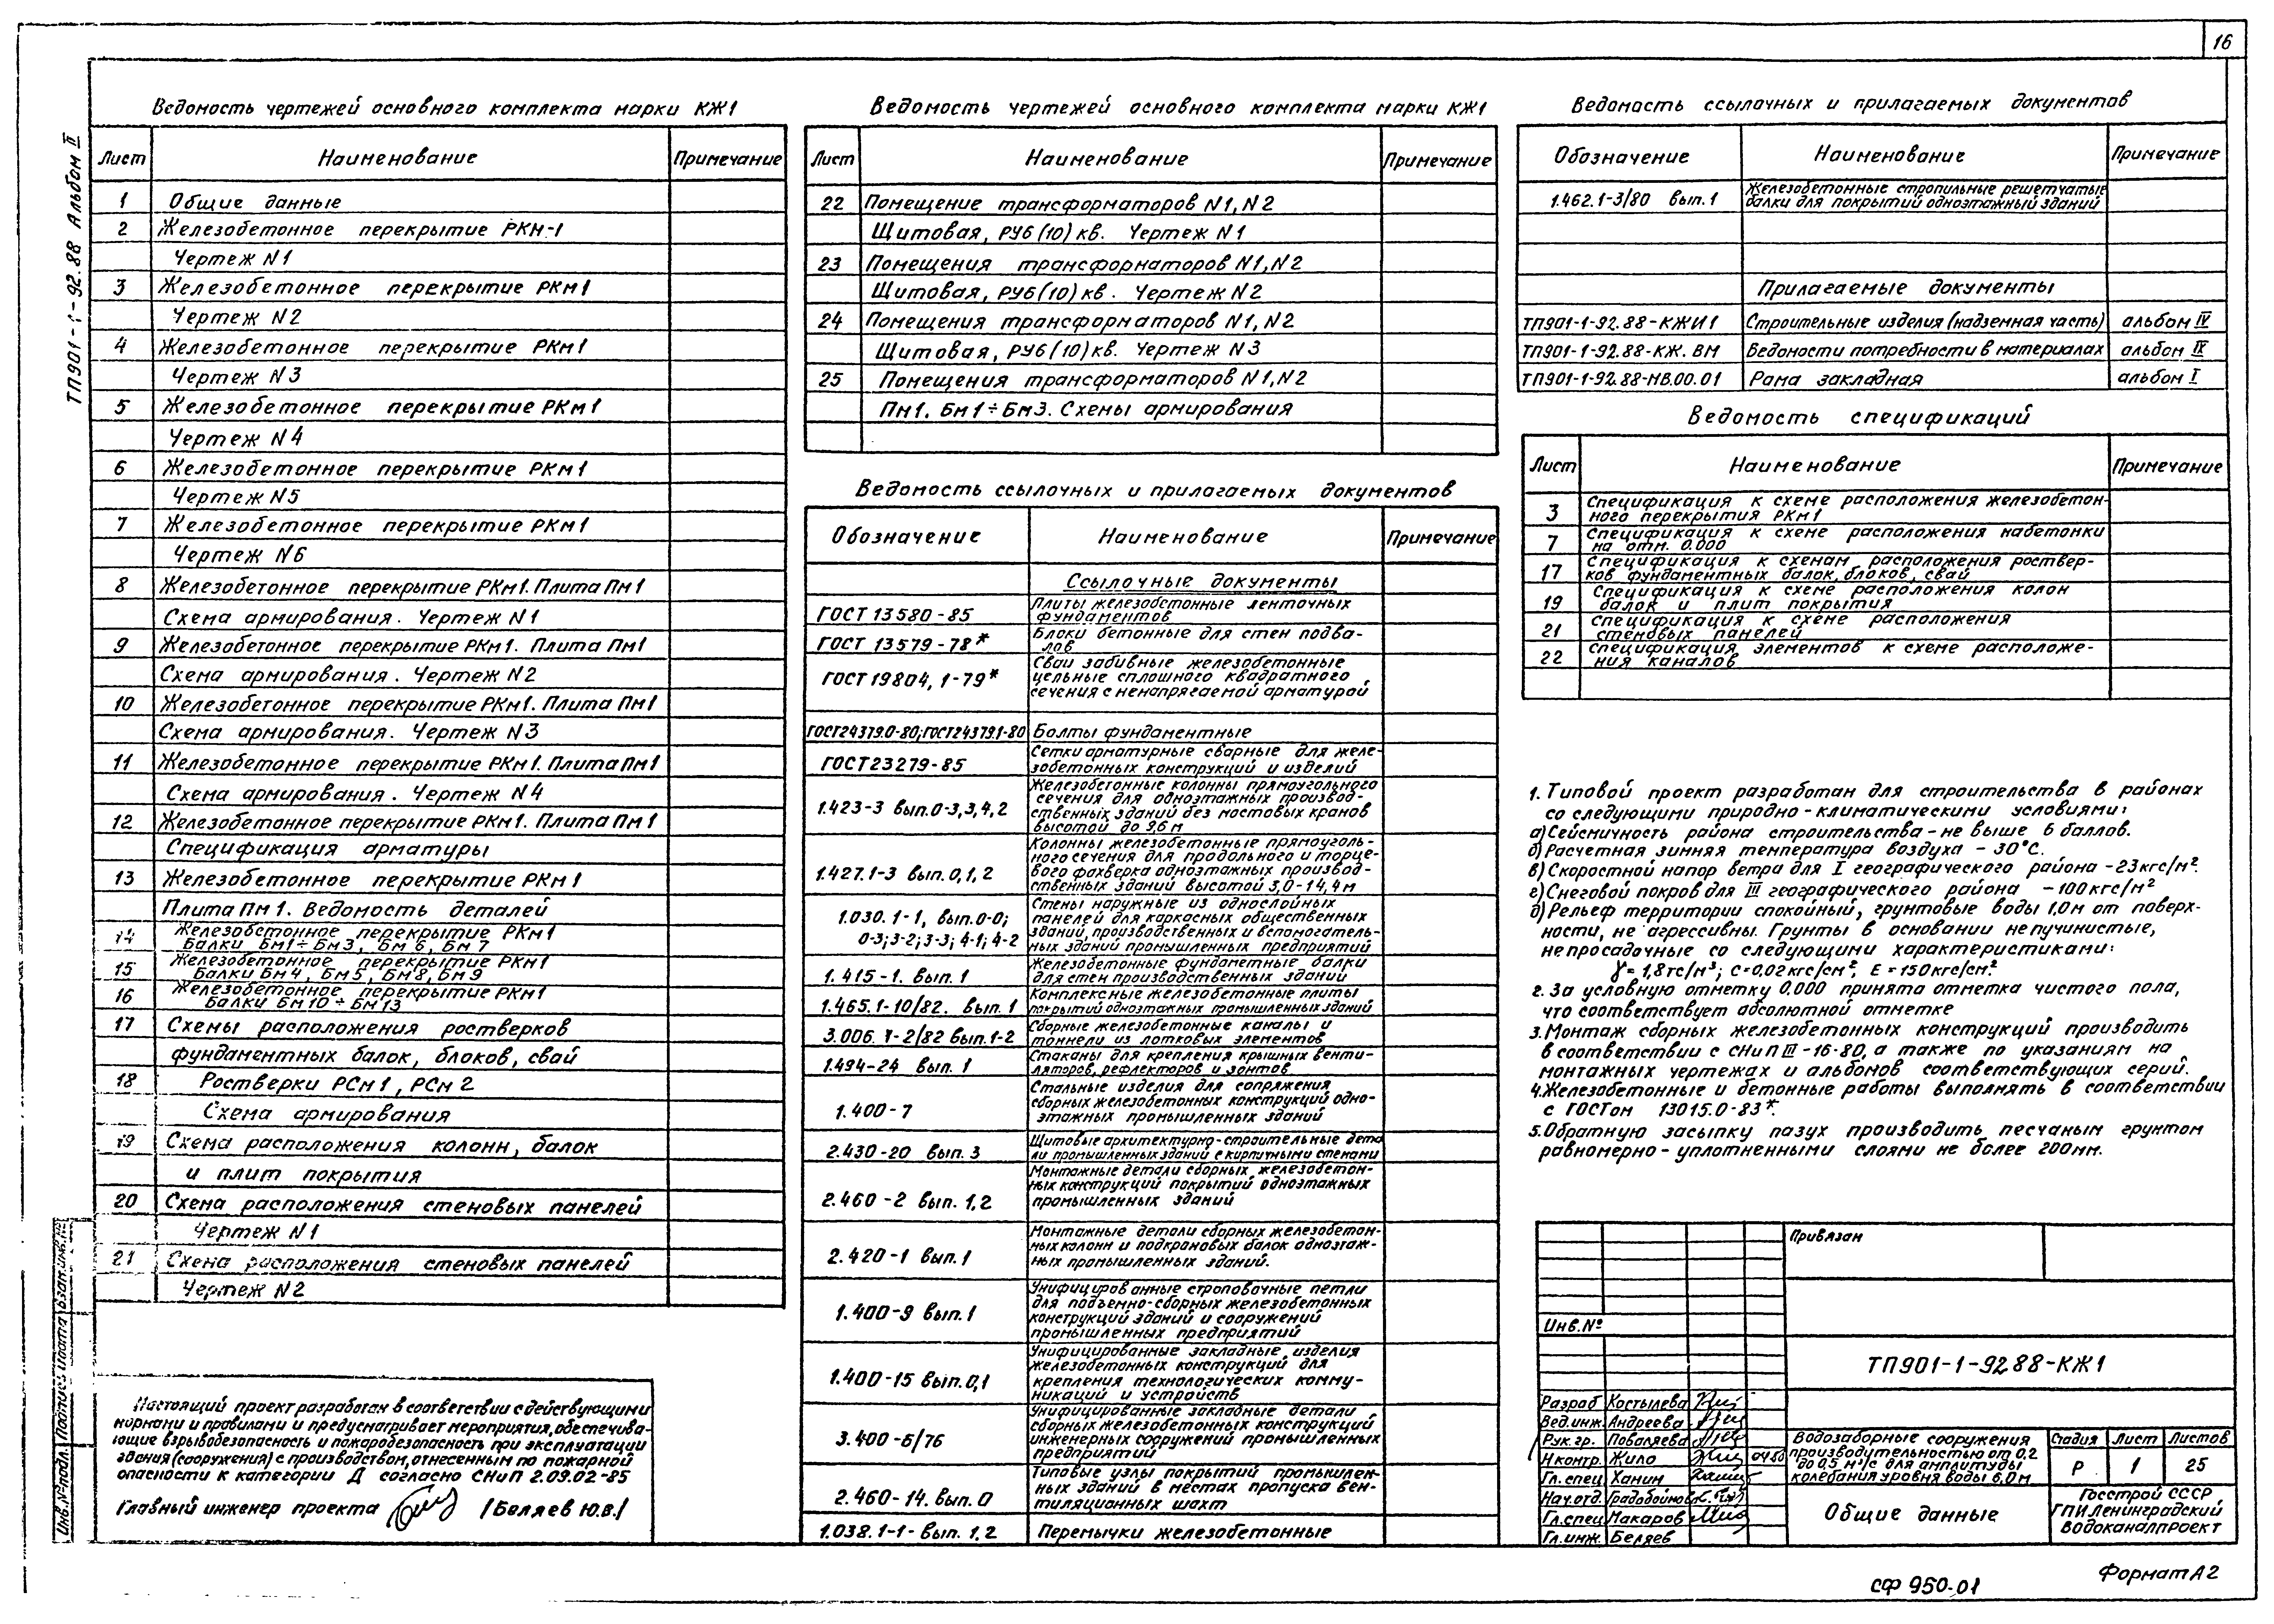 16
ТП901-1-92.88 Альбом II
Ведомость чертежей основного комплекта марки КЖ1
Лист Наименование Примечание
1 Общие данные
2 Железобетонное перекрытие РКм-1
Чертеж N1
3 Железобетонное перекрытие РКм1
Чертеж N2
4 Железобетонное перекрытие РКм1
Чертеж N3
5 Железобетонное перекрытие РКм1
Чертеж N4
6 Железобетонное перекрытие РКм1
Чертеж N5
7 Железобетонное перекрытие РКм1
Чертеж N6
8 Железобетонное перекрытие РКм1. Плита Пм1
Схема армирования. Чертеж N1
9 Железобетонное перекрытие РКм1. Плита Пм1
Схема армирования. Чертеж N2
10 Железобетонное перекрытие РКм1. Плита Пм1
Схема армирования. Чертеж N3
11 Железобетонное перекрытие РКм1. Плита Пм1
Схема армирования. Чертеж N4
12 Железобетонное перекрытие РКм1. Плита Пм1
Спецификация арматуры
13 Железобетонное перекрытие РКм1
Плита Пм1. Ведомость деталей
14 Железобетонное перекрытие РКм1
Балки Бм1÷Бм3, Бм6, Бм7
15 Железобетонное перекрытие РКм1
Балки Бм4, Бм5, Бм8, Бм9
16 Железобетонное перекрытие РКм1
Балки Бм10÷Бм13
17 Схемы расположения ростверков
фундаментных балок, блоков, свай
18 Ростверки РСм1, РСм2
Схема армирования
19 Схема расположения колонн, балок
и плит покрытия
20 Схема расположения стеновых панелей
Чертеж N1
21 Схема расположения стеновых панелей
Чертеж N2
Настоящий проект разработан в соответствии с действующими
нормами и правилами и предусматривает мероприятия, обеспечива-
ющие взрывобезопасность и пожаробезопасность при эксплуатации
здания (сооружения) с производством, отнесенным по пожарной
опасности к категории Д согласно СНиП 2.09.02-85
Главный инженер проекта /Беляев Ю.В./
Инв.№подл. Подпись и дата Взам.инв.№
Ведомость чертежей основного комплекта марки КЖ1
Лист Наименование Примечание
22 Помещение трансформаторов N1, N2
Щитовая, РУ6(10)кв. Чертеж N1
23 Помещения трансформаторов N1, N2
Щитовая, РУ6(10)кв. Чертеж N2
24 Помещения трансформаторов N1, N2
Щитовая, РУ6(10)кв. Чертеж N3
25 Помещения трансформаторов N1, N2
Пм1. Бм1÷Бм3. Схемы армирования
Ведомость ссылочных и прилагаемых документов
Обозначение Наименование Примечание
Ссылочные документы
ГОСТ 13580-85 Плиты железобетонные ленточных
фундаментов
ГОСТ 13579-78* Блоки бетонные для стен подва-
лов
ГОСТ 19804, 1-79* Сваи забивные железобетонные
цельные сплошного квадратного
сечения с ненапрягаемой арматурой
ГОСТ24379.0-80; ГОСТ24379.1-80 Болты фундаментные
ГОСТ23279-85 Сетки арматурные сварные для желе-
зобетонных конструкций и изделий
1.423-3 вып.0-3,3,4,2 Железобетонные колонны прямоугольного
сечения для одноэтажных производ-
ственных зданий без мостовых кранов
высотой до 9,6м
1.427.1-3 вып.0,1,2 Колонны железобетонные прямоуголь-
ного сечения для продольного и торце-
вого фахверка одноэтажных производ-
ственных зданий высотой 3,0-14,4м
1.030.1-1, вып.0-0;
0-3; 3-2; 3-3; 4-1; 4-2 Стены наружные из однослойных
панелей для каркасных общественных
зданий, производственных и вспомогатель-
ных зданий промышленных предприятий
1.415-1. вып.1 Железобетонные фундаметные балки
для стен производственных зданий
1.465.1-10/82. вып.1 Комплексные железобетонные плиты
покрытий одноэтажных промышленных зданий
3.006.1-2/82 вып.1-2 Сборные железобетонные каналы и
тоннели из лотковых элементов
1.494-24 вып.1 Стаканы для крепления крышных венти-
ляторов, рефлекторов и зонтов
1.400-7 Стальные изделия для сопряжения
сборных железобетонных конструкций одно-
этажных промышленных зданий
2.430-20 вып.3 Щитовые архитектурно-строительные дета
ли промышленных зданий с кирпичными стенами
2.460-2 вып.1,2 Монтажные детали сборных железобетон-
ных конструкций покрытий одноэтажных
промышленных зданий
2.420-1 вып.1 Монтажные детали сборных железобетон-
ных колонн и подкрановых балок одноэтаж-
ных промышленных зданий.
1.400-9 вып.1 Унифицированные строповочные петли
для подъемно-сборных железобетонных
конструкций зданий и сооружений
промышленных предприятий
1.400-15 вып.0,1 Унифицированные закладные изделия
железобетонных конструкций для
крепления технологических комму-
никаций и устройств
3.400-6/76 Унифицированные закладные детали
сборных железобетонных конструкций
инженерных сооружений промышленных
предприятий
2.460-14. вып.0 Типовые узлы покрытий промышлен-
ных зданий в местах пропуска вен-
тиляционных шахт
1.038.1-1- вып.1,2 Перемычки железобетонные
Ведомость ссылочных и прилагаемых документов
Обозначение Наименование Примечание
1.462.1-3/80 вып.1 Железобетонные стропильные решетчатые
балки для покрытий одноэтажный зданий
Прилагаемые документы
ТП901-1-92.88-КЖИ1 Строительные изделия (надземная часть) альбом IV
ТП901-1-92.88-КЖ.ВМ Ведомости потребности в материалах альбом IX
ТП901-1-92.88-МВ.00.01 Рама закладная альбом I
Ведомость спецификаций
Лист Наименование Примечание
3 Спецификация к схеме расположения железобетон-
ного перекрытия РКм1
7 Спецификация к схеме расположения набетонки
на отм. 0.000
17 Спецификация к схемам расположения роствер-
ков фундаментных балок, блоков, свай
19 Спецификация к схеме расположения колон
балок и плит покрытия
21 Спецификация к схеме расположения
стеновых панелей
22 Спецификация элементов к схеме расположе-
ния каналов
1. Типовой проект разработан для строительства в районах
со следующими природно-климатическими условиями:
а) Сейсмичность района строительства - не выше 6 баллов.
б) Расчетная зимняя температура воздуха - 30°С.
в) Скоростной напор ветра для I географического района - 23кгс/м².
г) Снеговой покров для III географического района - 100кгс/м²
д) Рельеф территории спокойный, грунтовые воды 1,0м от поверх-
ности, не агрессивны. Грунты в основании непучинистые,
непросадочные со следующими характеристиками:
γ= 1,8тс/м³; С=0,02кгс/см², Е=150кгс/см².
2. За условную отметку 0.000 принята отметка чистого пола,
что соответствует абсолютной отметке
3. Монтаж сборных железобетонных конструкций производить
в соответствии с СНиП III-16-80, а также по указаниям на
монтажных чертежах и альбомов соответствующих серий.
4. Железобетонные и бетонные работы выполнять в соответствии
с ГОСТом 13015.0-83*.
5. Обратную засыпку пазух производить песчаным грунтом
равномерно-уплотненными слоями не более 200мм.
Привязан
Инв.№
ТП901-1-9288-КЖ1
Разраб Костылева
Вед.инж. Андреева
Рук.гр. Поваляева
Н контр. Жило
Гл.спец Ханин
Нач.отд. Градобойнов
Гл.спец Макаров
Гл.инж. Беляев
Водозаборные сооружения
производительностью от 0,2
до 0,5 м³/с для амплитуды
колебания уровня воды 6,0м
Стадия Лист Листов
Р 1 25
Общие данные
Госстрой СССР
ГПИ Ленинградский
Водоканалпроект
СФ 950-01
Формат А2